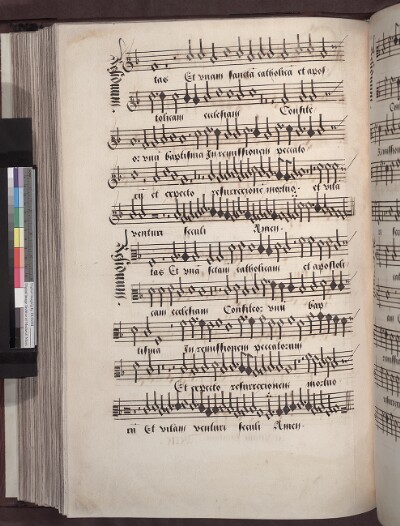 tas Et vnam sanctā catholicā et apos
tolicam ecclesiam Confite
or vnū baptisma In remissionem peccato
rū et expecto resurrectionē mortuoꝝ et vita
venturi seculi Amen.
tas Et vnā sctam catholicam et apostoli
cam ecclesiam Confiteor vnū bap
tisma In remissionem peccatorum
Et expecto resurrectionem mortuo
rū Et vitam venturi seculi Amen.